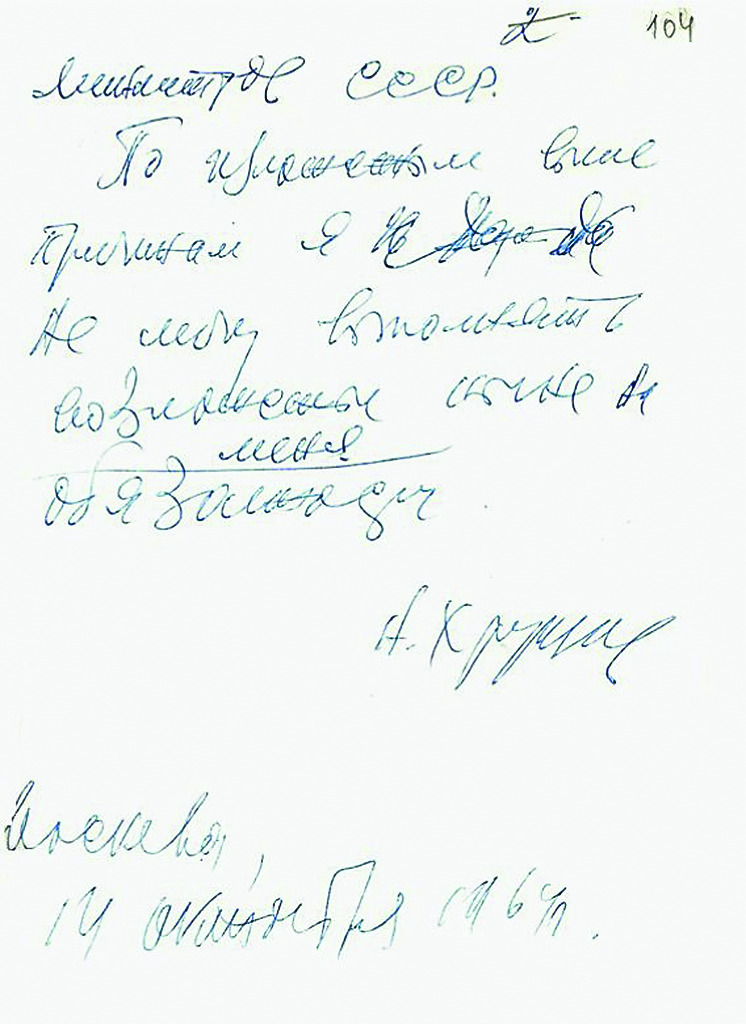 2 104
Министров СССР.
По изложенным выше
причинам я
не могу выполнять
возложенные ныне на
меня
обязанности
Н. Хрущев
Москва,
14 октября 1964 г.